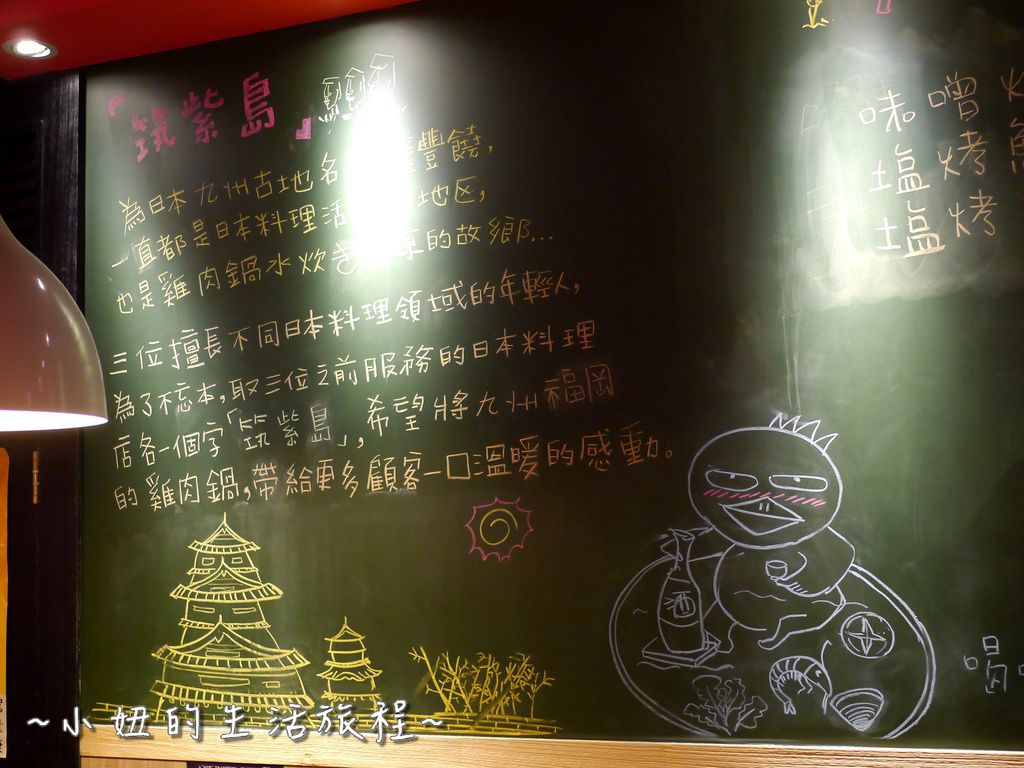 「筑紫島」
為日本九州古地名 豐饒，
一直都是日本料理活 地区，
也是雞肉鍋水炊き 的故鄉…
三位擅長不同日本料理領域的年輕人，
為了不忘本，取三位之前服務的日本料理
店各一個字「筑紫島」，希望將九州福岡
的雞肉鍋，帶給更多顧客一口溫暖的感動。
味噌
塩烤魚
塩烤
喝
~小妞的生活旅程~